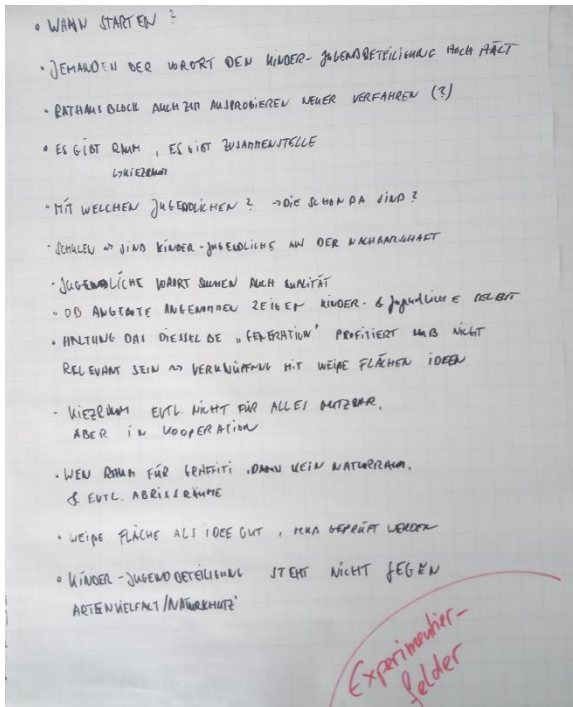 • WANN STARTEN ?
• JEMANDEN DER VORORT DEN KINDER- JUGENDBETEILIGUNG HOCH HÄLT
• RATHAUSBLOCK AUCH ZUM AUSPROBIEREN NEUER VERFAHREN (?)
• ES GIBT RAUM, ES GIBT ZUSAMMENSTELLE
↳ KIEZRAUM
• MIT WELCHEN JUGENDLICHEN? → DIE SCHON DA SIND?
• SCHULEN ↔ SIND KINDER-JUGENDLICHE AUS DER NACHBARSCHAFT
• JUGENDLICHE VORORT SUCHEN AUCH QUALITÄT
• OB ANGEBOTE ANGENOMMEN ZEIGEN KINDER- & Jugendliche SELBST
• HALTUNG DAS DIESSELBE „GENERATION" PROFITIERT MUß NICHT
RELEVANT SEIN ↝ VERKNÜPFUNG MIT WEIßE FLÄCHEN IDEEN
• KIEZRAUM EVTL. NICHT FÜR ALLES NUTZBAR,
ABER IN KOOPERATION
• WEN RAUM FÜR GRAFFITI, DANN KEIN NATURRAUM.
& EVTL. ABRISSRÄUME
• WEIßE FLÄCHE ALS IDEE GUT, MUß GEPRÜFT WERDEN
• KINDER-JUGENDBETEILIGUNG STEHT NICHT GEGEN
ARTENVIELFALT/NATURSCHUTZ
Experimentier-
felder